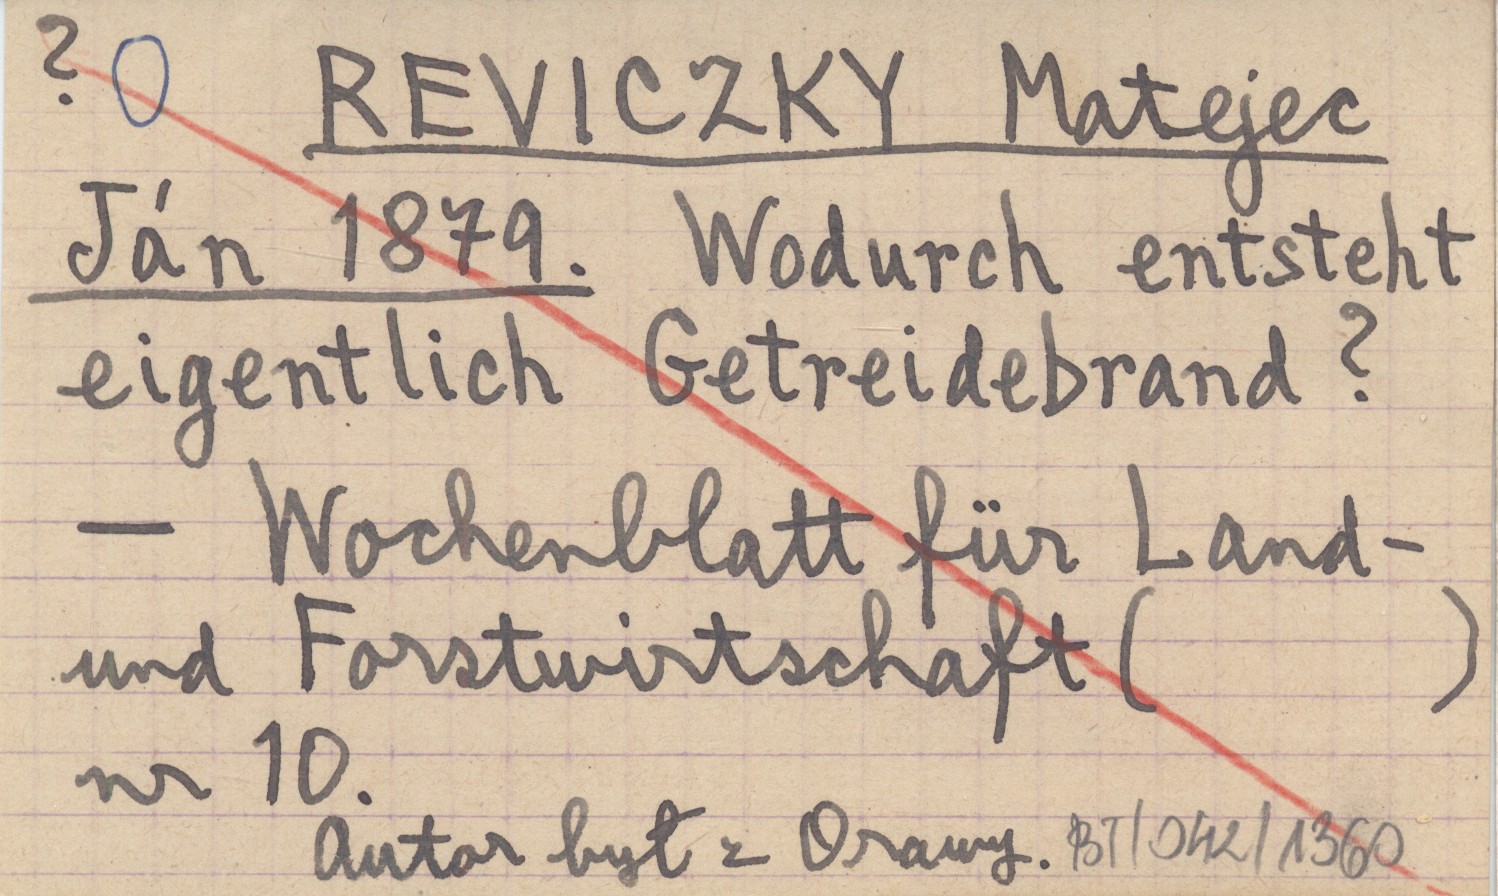 ? O REVICZKY Matejec
Ján 1879. Wodurch entsteht
eigentlich Getreidebrand?
— Wochenblatt für Land-
und Forstwirtschaft ( )
nr 10.
Autor był z Orawy. BT/042/1360